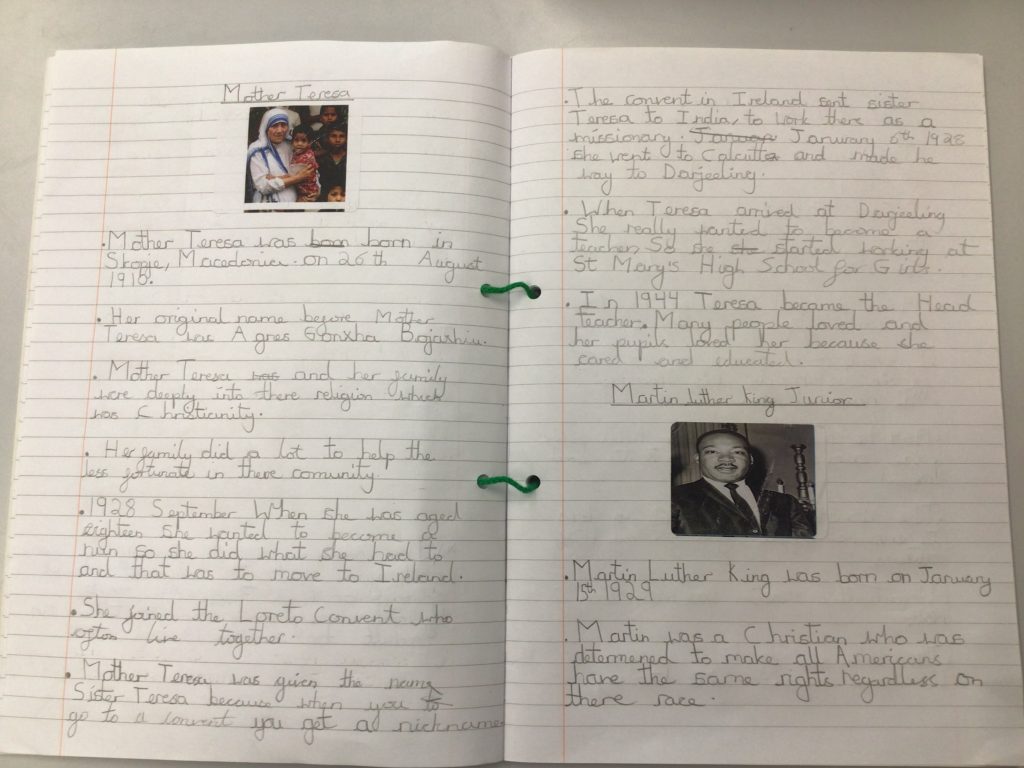 Mother Teresa
.Mother Teresa was born born in
Skopje, Macedonia. on 26th August
1910.
. Her original name before Mother
Teresa was Agnes Gonxha Bojaxhiu.
. Mother Teresa was and her family
were deeply into there religion which
was Christianity.
. Her family did a lot to help the
less fortunate in there comunity.
.1928 September When she was aged
eighteen she wanted to become a
nun so she did what she had to
and that was to move to Ireland.
.She joined the Loreto Convent who
often live together.
.Mother Teresa was given the name
Sister Teresa because when you to
go to a convent you got a nickname
.The convent in Ireland sent sister
Teresa to India, to work there as a
missionary. Janurary 6th 1928
she went to Calcutta and made he
way to Darjeeling.
. When Teresa arrived at Darjeeling
She really wanted to become a
teacher. So she started working at
St Mary's High School for Girls.
. In 1944 Teresa became the Head
teacher. Many people loved and
her pupils loved her because she
cared and educated.
Martin Luther King Junior
.Martin Luther King was born on January
15th 1929
. Martin was a Christian who was
determened to make all Americans
have the same rights regardless on
there race.